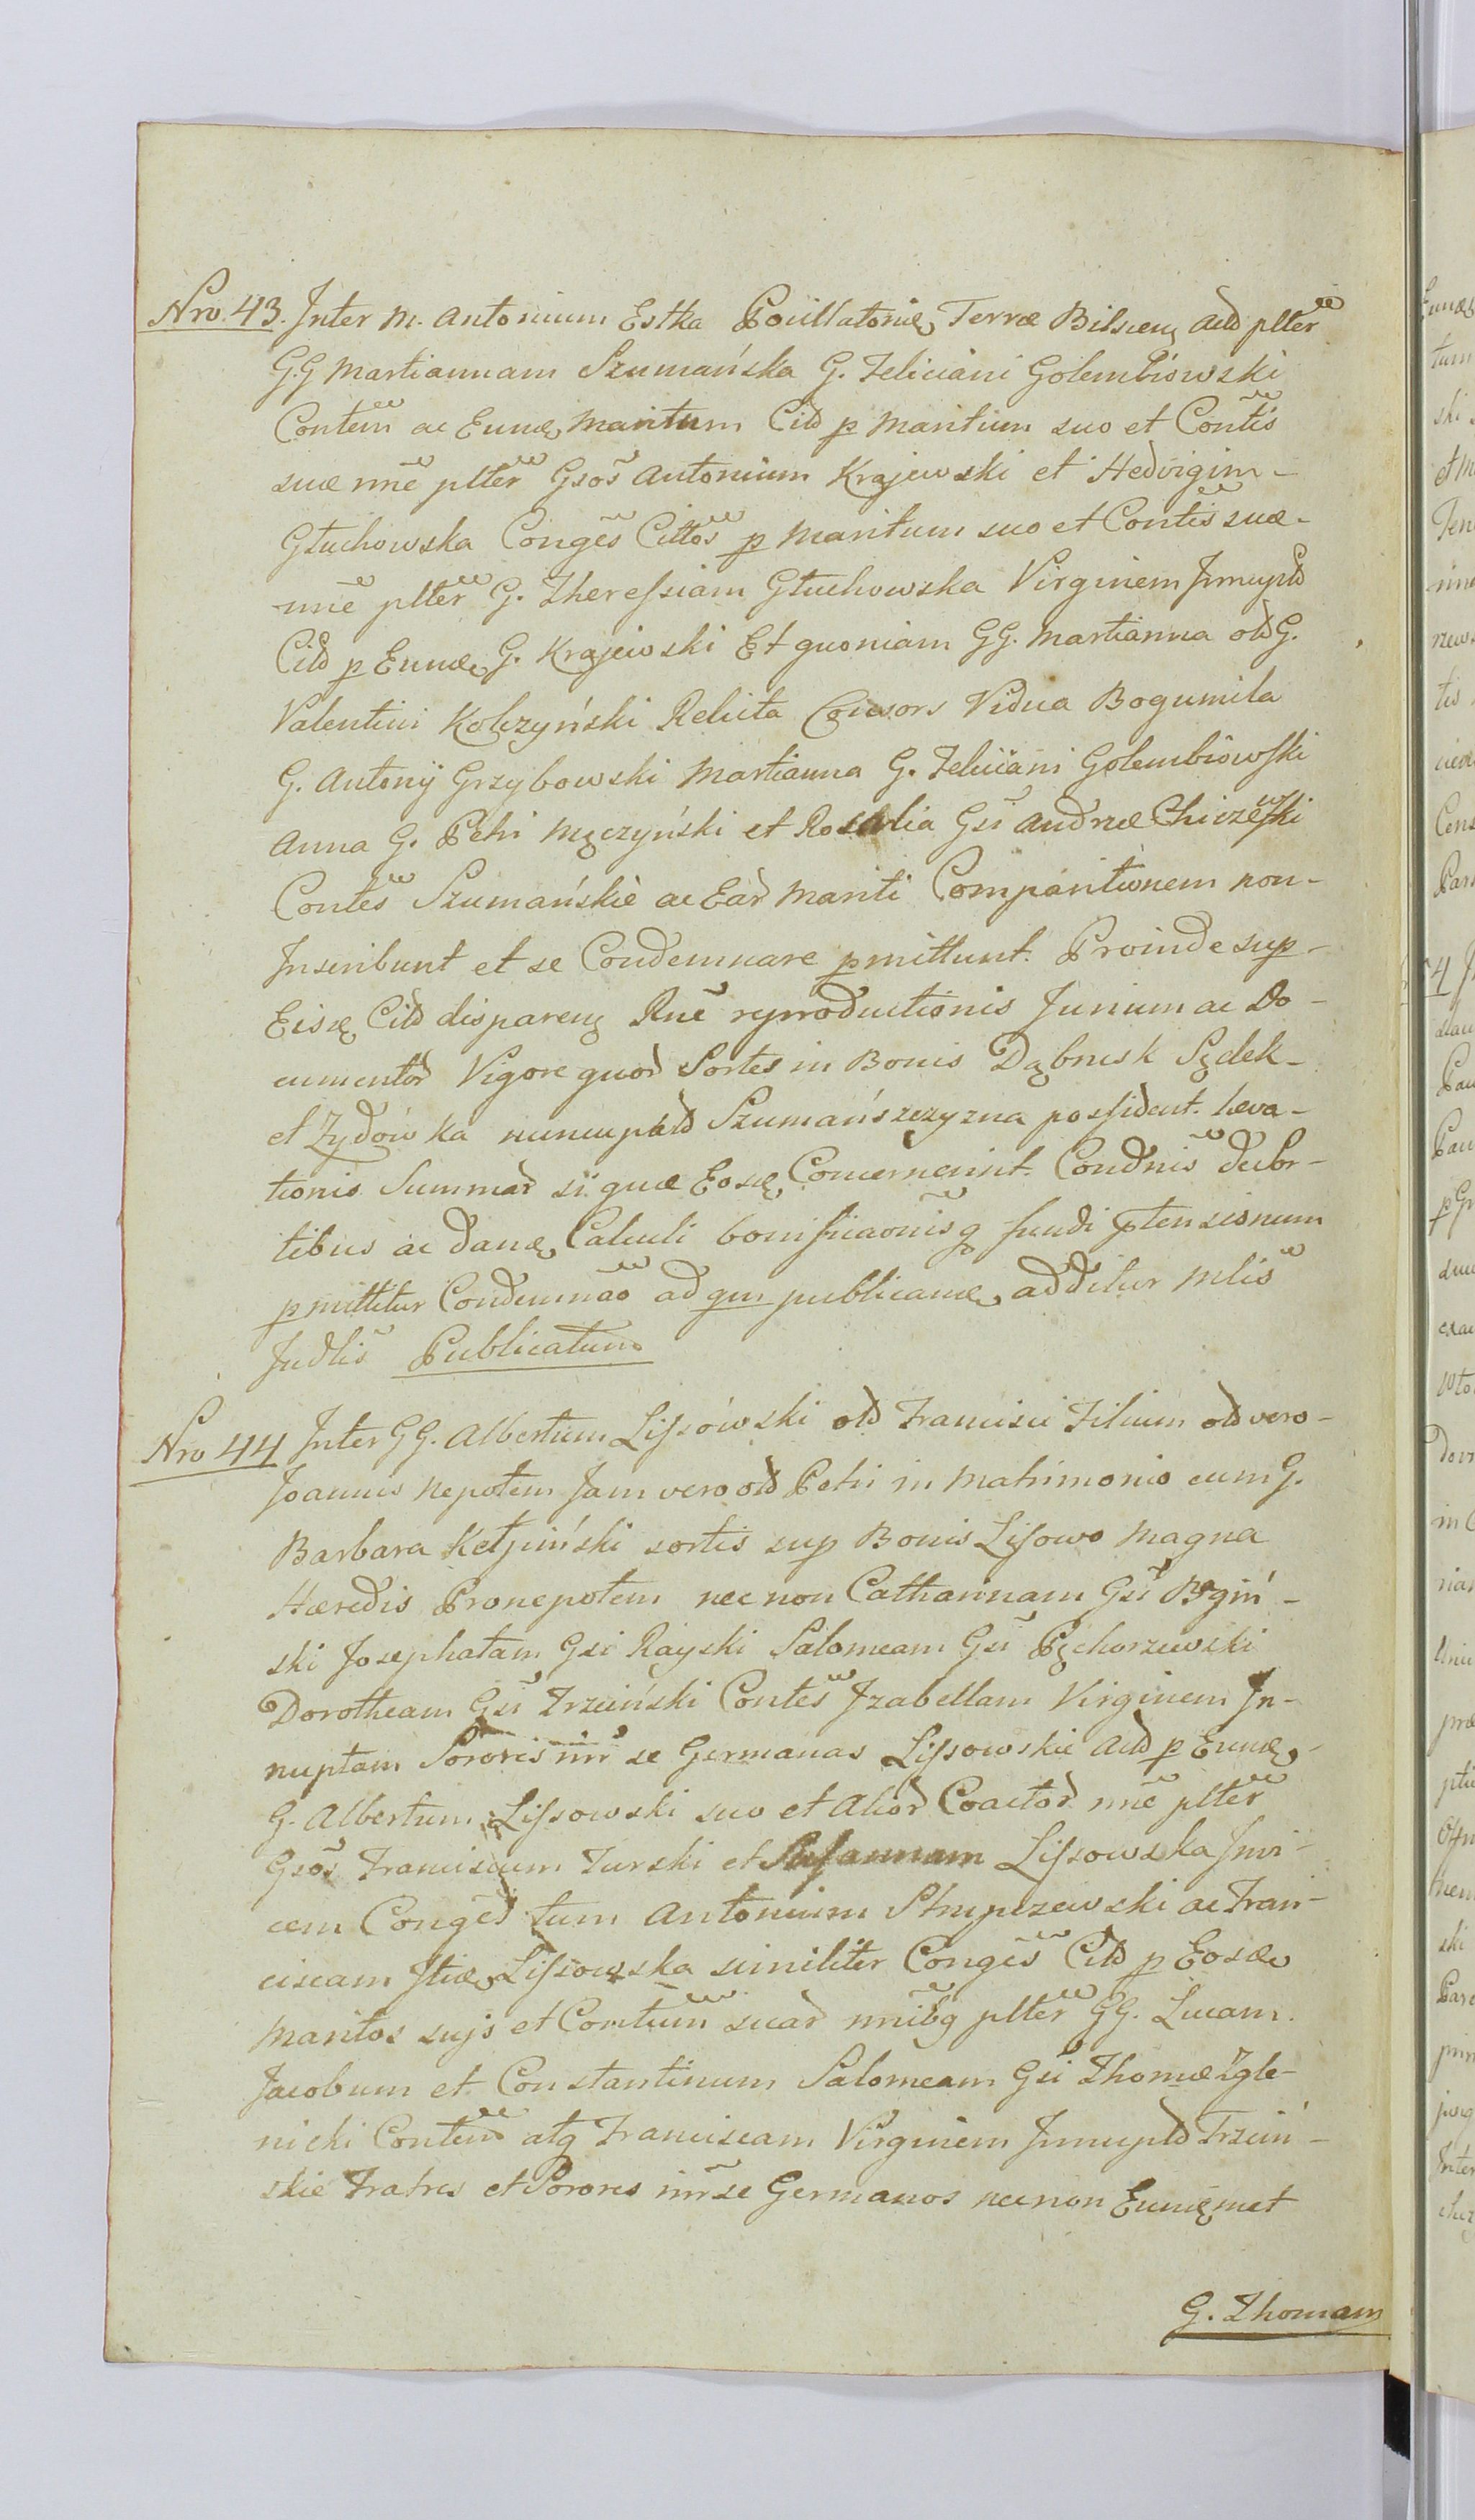 Nro 43. Inter M. Antonium Estka Pocillatorię Terræ Bilscen̨ Actõ pltẽr
G.G Martiannam Szumańska G. Feliciani Golembiowski
Contẽm ac Eunę Maritum Citõ p Maritum suo et Contĩs
suæ nñe pltẽr Gsõs Antonium Krajewski et Hedvigim-
Głuchowska Congẽs Cittõs p Maritum suo et Contĩs suæ-
nñe pltẽr G. Theressiam Głuchowska Virginem Innuptõ
Citõ p Eunę G. Krajewski Et quoniam GG. Martianna olõ G.
Valentini Kolczyński Relicta Consors Vidua Bogumila
G. Antonij Grzybowski Martianna G. Feliciani Golembiowski
Anna G. Petri Męczyński et Rosalia Gsĩ Andreæ
Contẽs Szumańskie ac Eaõ Mariti Comparitionem non-
Inscribunt et se Condemnare pmittunt. Proinde sup-
Eisę Citõ disparen̨ Rnẽ reproductionis Jurium ac Do-
cumentõ Vigore quoõ Sortes in Bonis Dąbrusk Sędek-
et Zydowka nuncupatõ Szumańszczyzna possident. leva-
tionis Summaõ si quæ Eosę Concernerint. Condnĩs debr-
tibus ac danę Calculi bonificaonĩsq fundi ptensionum
pmittitur Condemnaõ ad qm publicanę additur Mlĩs
Judlĩs Publicatum
Nro 44 Inter GG. Albertum Lissowski olõ Francisci Filium olõ vero-
Joannis Nepotem Jam vero olõ Petri in Matrimonio cum G.
Barbara Kełpiński sortis sup Bonis Lisowo Magna
Hæredis Pronepotem nec non Catharinam Gsĩ
ski Josephatam Gsi Rayski Salomeam Gsĩ Pęchorzewski
Dorotheam Gsĩ Trzciński Contẽs Izabellam Virginem In-
nuptam Sorores inr̃ se Germanas Lissowskie Actõ p Eunę-
G. Albertum Lissowski suo et Alioõ Coactoõ nñe pltẽr
Gsõs Franciscum Turski et Susannam Lissowska Invi-
cem Congẽs tum Antonium Strupczewski ac Fran-
ciscam Itię Lissowska similiter Congẽs Citõ p Eosæ
Maritos sujs et Contũm suaõ nñibq pltẽr GG. Lucam.
Jacobum et Constantinum Salomeam Gsĩ Thomæ Zgle-
nicki Contẽm atq Franciscam Virginem Innuptõ Trzciń-
skie Fratres et Sorores inr̃ se Germanos necnon Eunęmet
G. Thomam